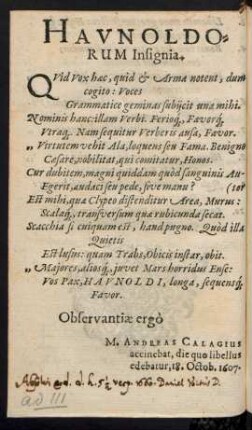 HAVNOLDO-
RUM Insignia.
QVid Vox hac, quid & Arma notent, dum
cogito: Voces
Grammatice geminas subijcit una mihi.
Nominis hanc: illam Verbi. Ferioq́, Favorq́,
Vtraq́. Nam sequitur Verberis ansa, Favor.
„ Virtutem vehit Ala, loquens seu Fama. Benigno
Cæsare, nobilitat, qui comitatur, Honos.
Cur dubitem, magni quiddam quòd sanguinis Au-
Egerit, audaci seu pede, sive manu? (tor
Est mihi, qua Clypeo distenditur Area, Murus:
Scalaq́, transversum qua rubicunda secat.
Scacchia si cuiquam est, haud pugno. Quòd illa
Quietis
Est lusus: quam Trabs, Obicis instar, obit.
„ Majores, aliosq́, juvet Mars horridus Ense:
Vos Pax, HAVNOLDI, longa, sequensq́
Favor.
Observantiæ ergò
M. ANDREAS CALAGIUS
accinebat, die quo libellus
edebatur, 18. Octob. 1607.
ad III